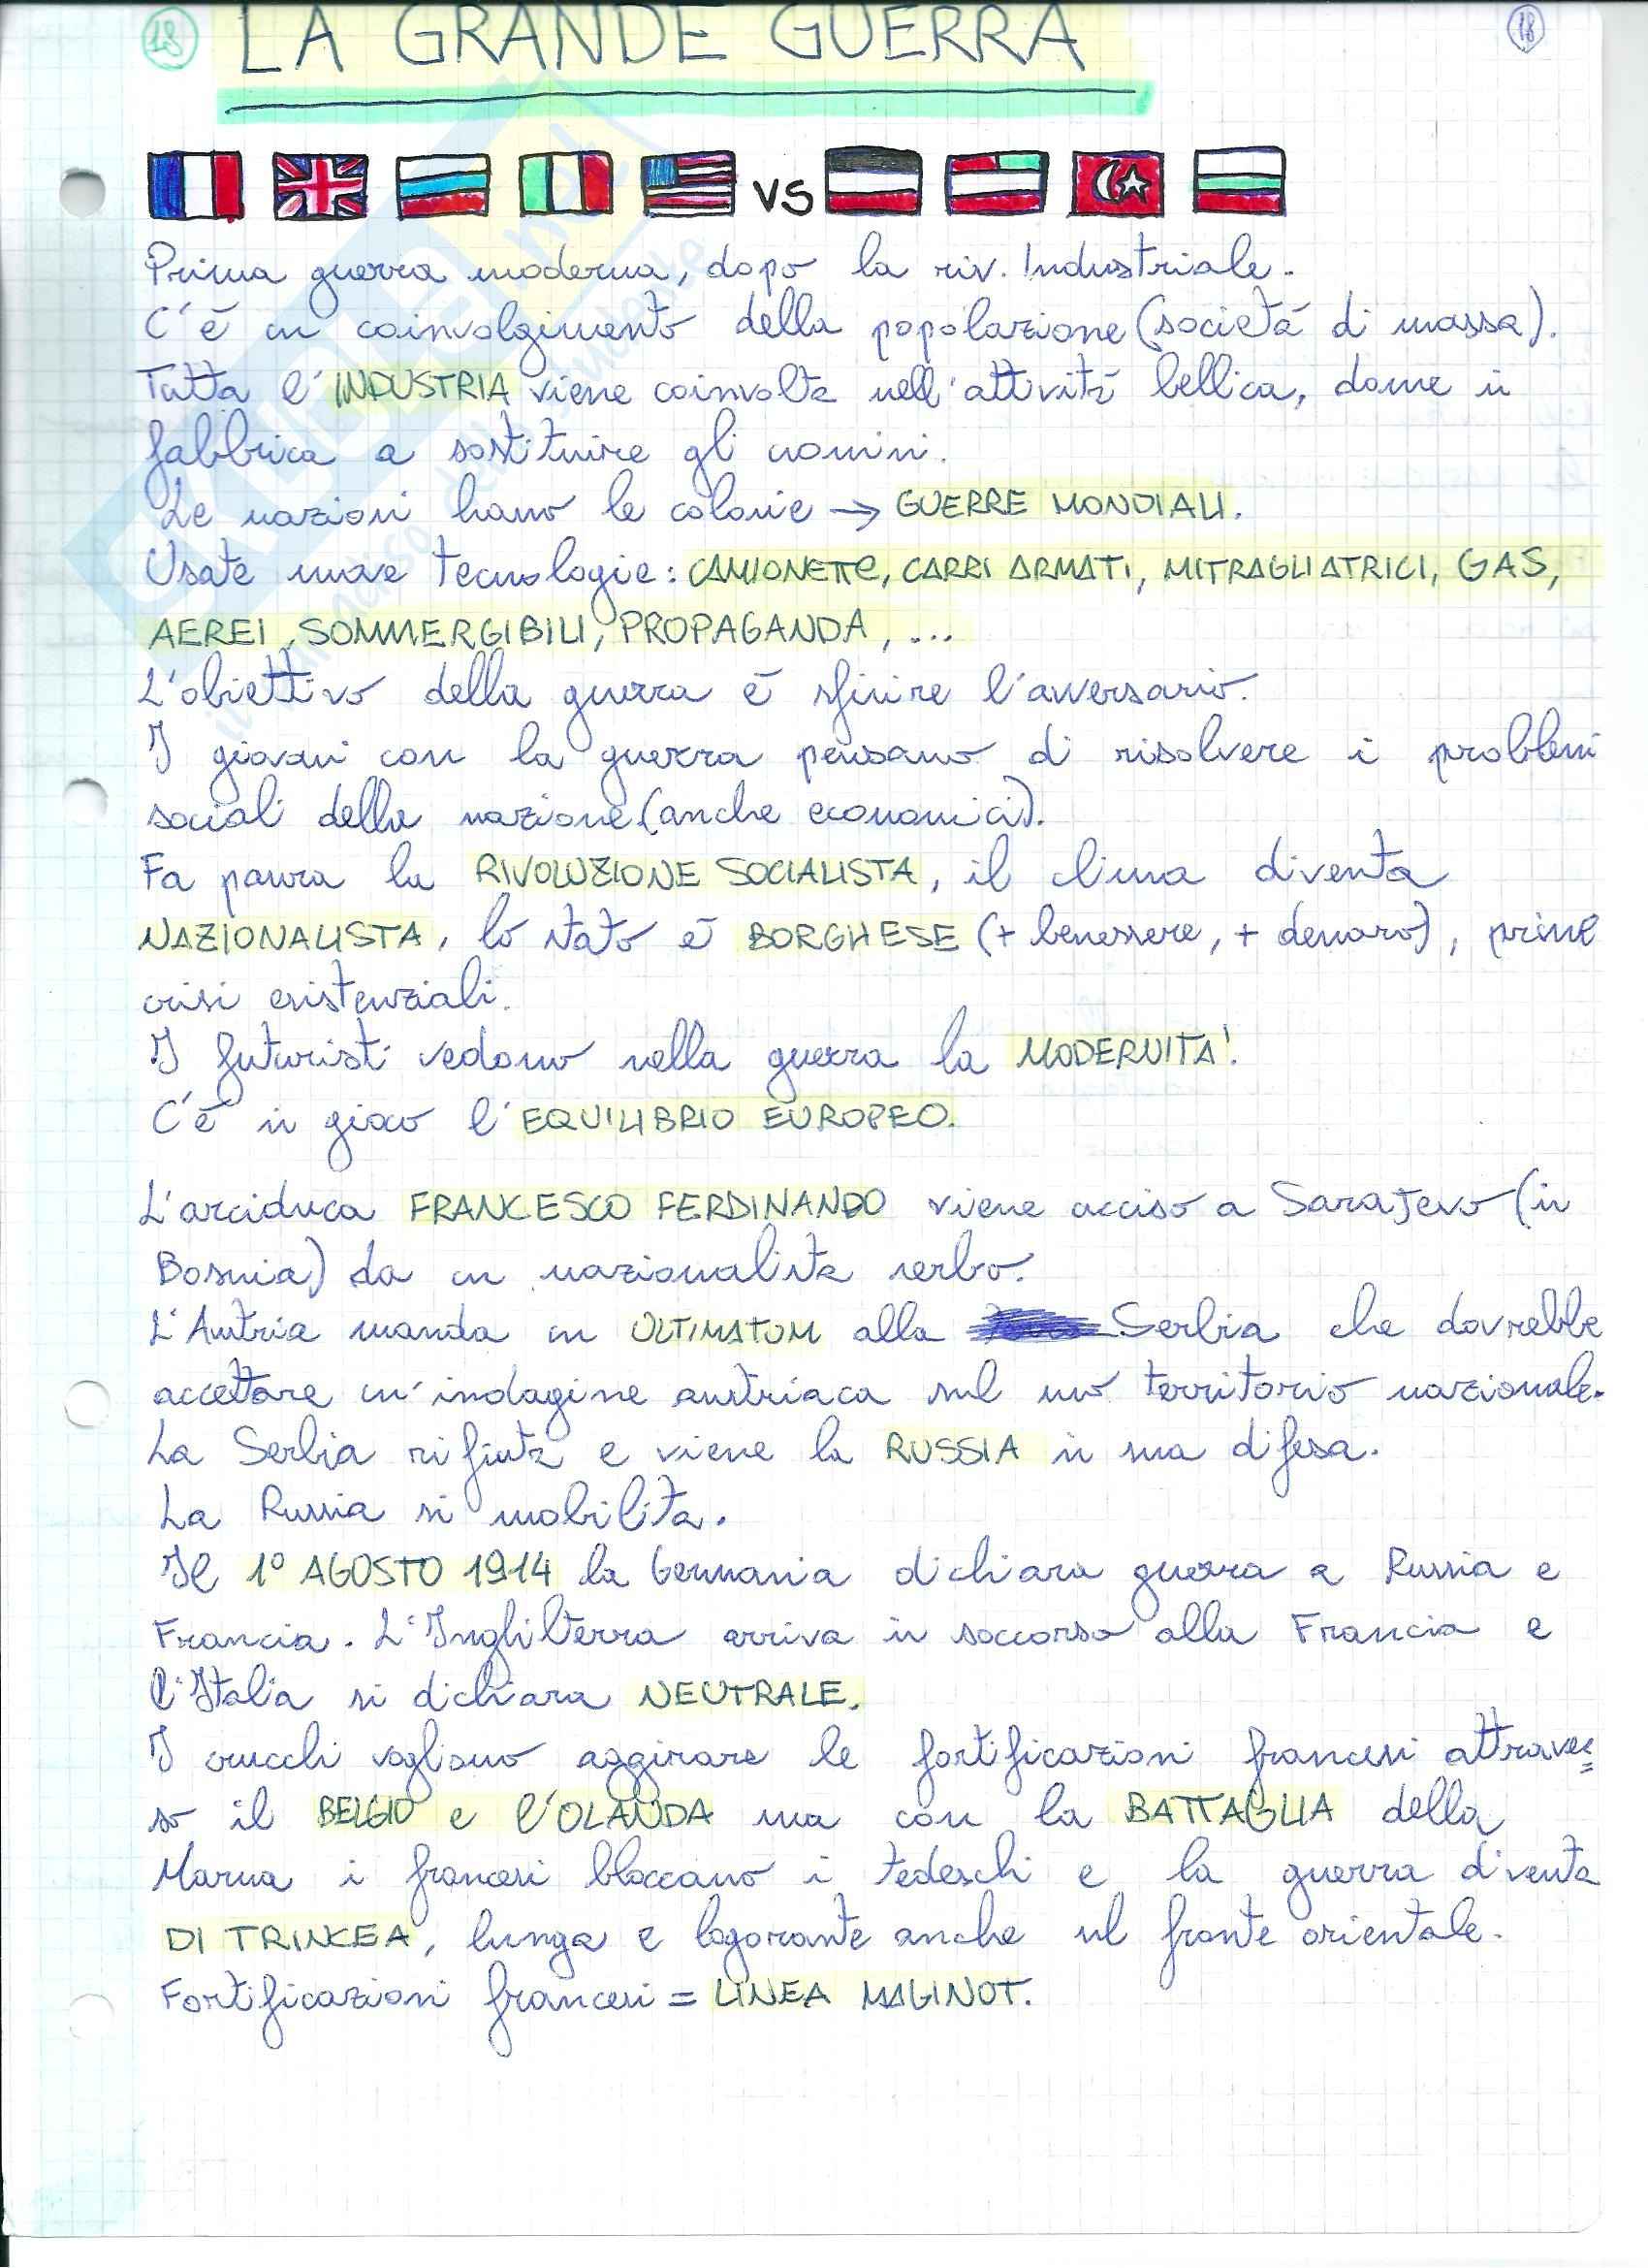 18 LA GRANDE GUERRA 18
VS
Prima guerra moderna, dopo la riv. Industriale.
C'é un coinvolgimento della popolazione (societá di massa).
Tutta l'INDUSTRIA viene coinvolta nell'attivitá bellica, donne in
fabbrica a sostituire gli uomini.
Le nazioni hanno le colonie → GUERRE MONDIALI.
Usate nuove tecnologie: CAMIONETTE, CARRI ARMATI, MITRAGLIATRICI, GAS,
AEREI, SOMMERGIBILI, PROPAGANDA, ...
L'obiettivo della guerra é sfinire l'avversario.
I giovani con la guerra pensano di risolvere i problemi
sociali della nazione (anche economici).
Fa paura la RIVOLUZIONE SOCIALISTA, il clima diventa
NAZIONALISTA, lo stato é BORGHESE (+ benessere, + denaro), prime
crisi esistenziali.
I futuristi vedono nella guerra la MODERNITA'.
C'é in gioco l'EQUILIBRIO EUROPEO.
L'arciduca FRANCESCO FERDINANDO viene ucciso a Sarajevo (in
Bosnia) da un nazionalista serbo.
L'Austria manda un ULTIMATUM alla Serbia che dovrebbe
accettare un'indagine austriaca sul suo territorio nazionale.
La Serbia rifiuta e viene la RUSSIA in sua difesa.
La Russia si mobilita.
Il 1° AGOSTO 1914 la Germania dichiara guerra a Russia e
Francia. L'Inghilterra arriva in soccorso alla Francia e
l'Italia si dichiara NEUTRALE.
I crucchi vogliono aggirare le fortificazioni francesi attraver=
so il BELGIO e l'OLANDA ma con la BATTAGLIA della
Marna i francesi bloccano i tedeschi e la guerra diventa
DI TRINCEA, lunga e logorante anche sul fronte orientale.
Fortificazioni francesi = LINEA MAGINOT.